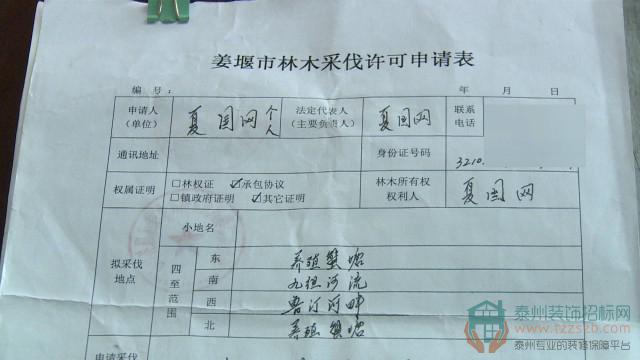 姜堰市林木采伐许可申请表
编 号： 年 月 日
申请人（单位） 夏国网 个人 法定代表人（主要负责人） 夏国网 联系电话
通讯地址 身份证号码 3210
权属证明 □林权证 ☑承包协议 □镇政府证明 ☑其它证明 林木所有权权利人 夏国网
拟采伐地点 小地名
四至范围 东 养殖蟹塘
南 九组河流
西 鲁汀河畔
北 养殖蟹塘
申请采伐
泰州装饰招标网
www.tzzs2b.com
泰州专业的装修保障平台